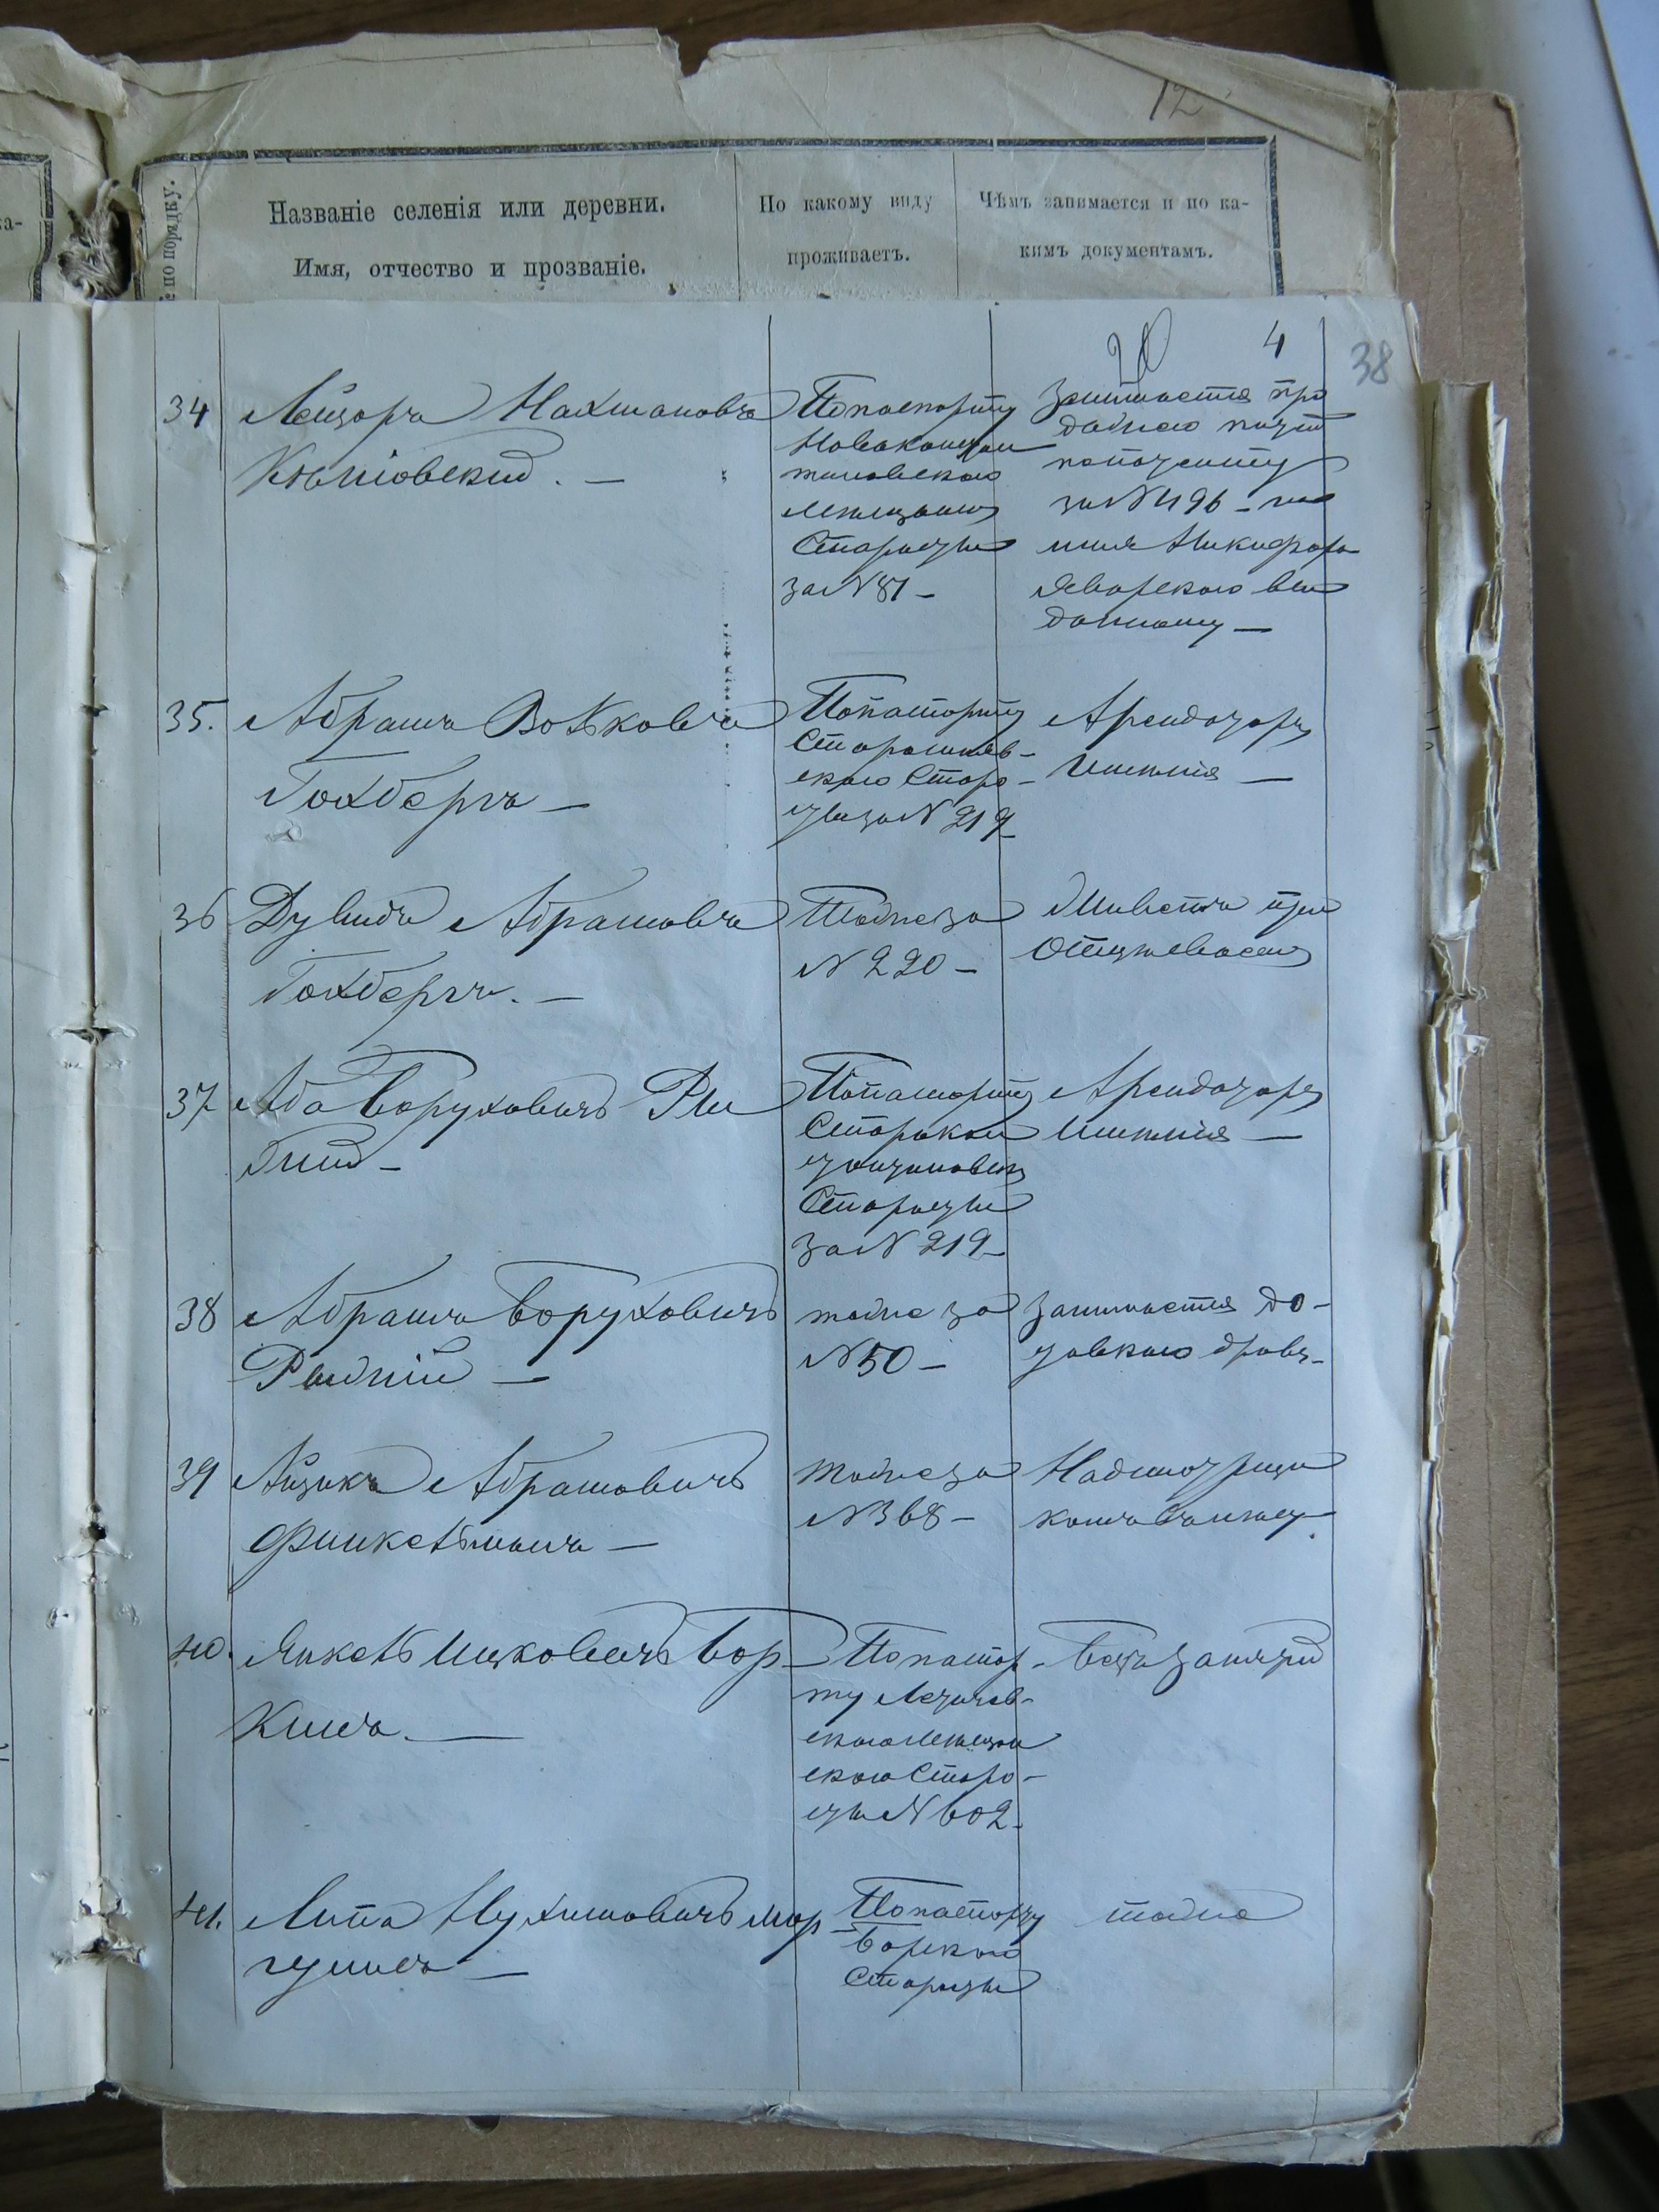 12
по порядку.
Названіе селенія или деревни.
Имя, отчество и прозваніе.
По какому виду
проживаетъ.
Чѣмъ занимается и по ка-
кимъ документамъ.
4
38
34
Лейзоръ Нахмановъ
По паспорту
Новоконстан
тиновскаго
Мѣщанск
Старосты
за № 81 –
Занимается про
дажею
за № 496 – на
имя Никифора
Яворскаго вы
данному –
35. Абрамъ Волковъ
Гохбергъ –
По паспорту
Старосиняв-
скаго Старо-
сты за № 219
Арендаторъ
Имѣнія –
36 Дувидъ Абрамовъ
Гохбергъ. –
Тоже за
№ 220 –
Живетъ при
37 Аба Боруховичъ Ри
По паспорту
Старокон
стантиновск
Старосты
за № 219 –
Арендаторъ
Имѣнія –
38 Абрамъ Боруховичъ
тоже за
№ 50 –
занимается до-
39 Айзикъ Абрамовичъ
Финкельманъ –
тоже за
№ 368 –
Надсмотрщи
комъ
40. Янкель Ицковичъ Бор-
кинъ. –
По паспор-
ту Летичев-
скаго Мѣщан
скаго Старо-
сты № 602.
Безъ занятій
41. Липа Нухимовичъ Мор-
гулисъ –
По паспорту
Барскаго
Старосты
тоже